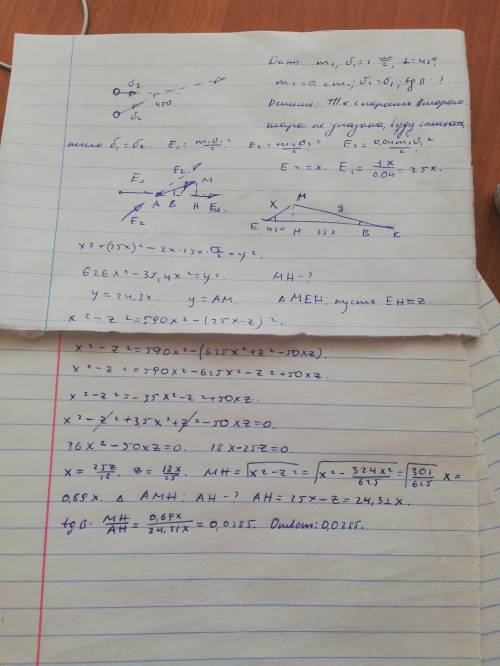 Дано: m₁, υ₁ = 1 м/с, α = 45°
m₂ = 0.2m₁; υ₂ = υ₁; tg B - ?
Решение: Т.к. скорость второго
шара не указана, буду считать,
υ₁
45°
υ₂
что υ₁ = υ₂. E₁ = m₁υ₁²/2 E₂ = m₂υ₂²/2 E₂ = 0,04m₁υ₁²
E₂ = x. E₁ = 1x/0.04 = 25x.
E₁ E₂ M
A B H E₁
E₂
M
x y
E 45° H 25x B K
x² + (25x)² - 2x·25x·√2/2 = y².
626x² - 35,4x² = y². MH - ?
y = 24.3x. y = AM. Δ MEH: пусть EH = z.
x² - z² = 590x² - (25x - z)².
x² - z² = 590x² - (625x² + z² - 50xz).
x² - z² = 590x² - 625x² - z² + 50xz
x² - z² = -35x² - z² + 50xz.
x² - z² + 35x² + z² - 50xz = 0.
36x² - 50xz = 0. 18x - 25z = 0.
x = 25z/18. z = 18x/25. MH = √(x² - z²) = √(x² - 324x²/625) = √(301/625) x =
0,69x. Δ AMH: AH - ? AH = 25x - z = 24,31x.
tg B = MH/AH = 0,69x/24,31x = 0,0285. Ответ: 0,0285.